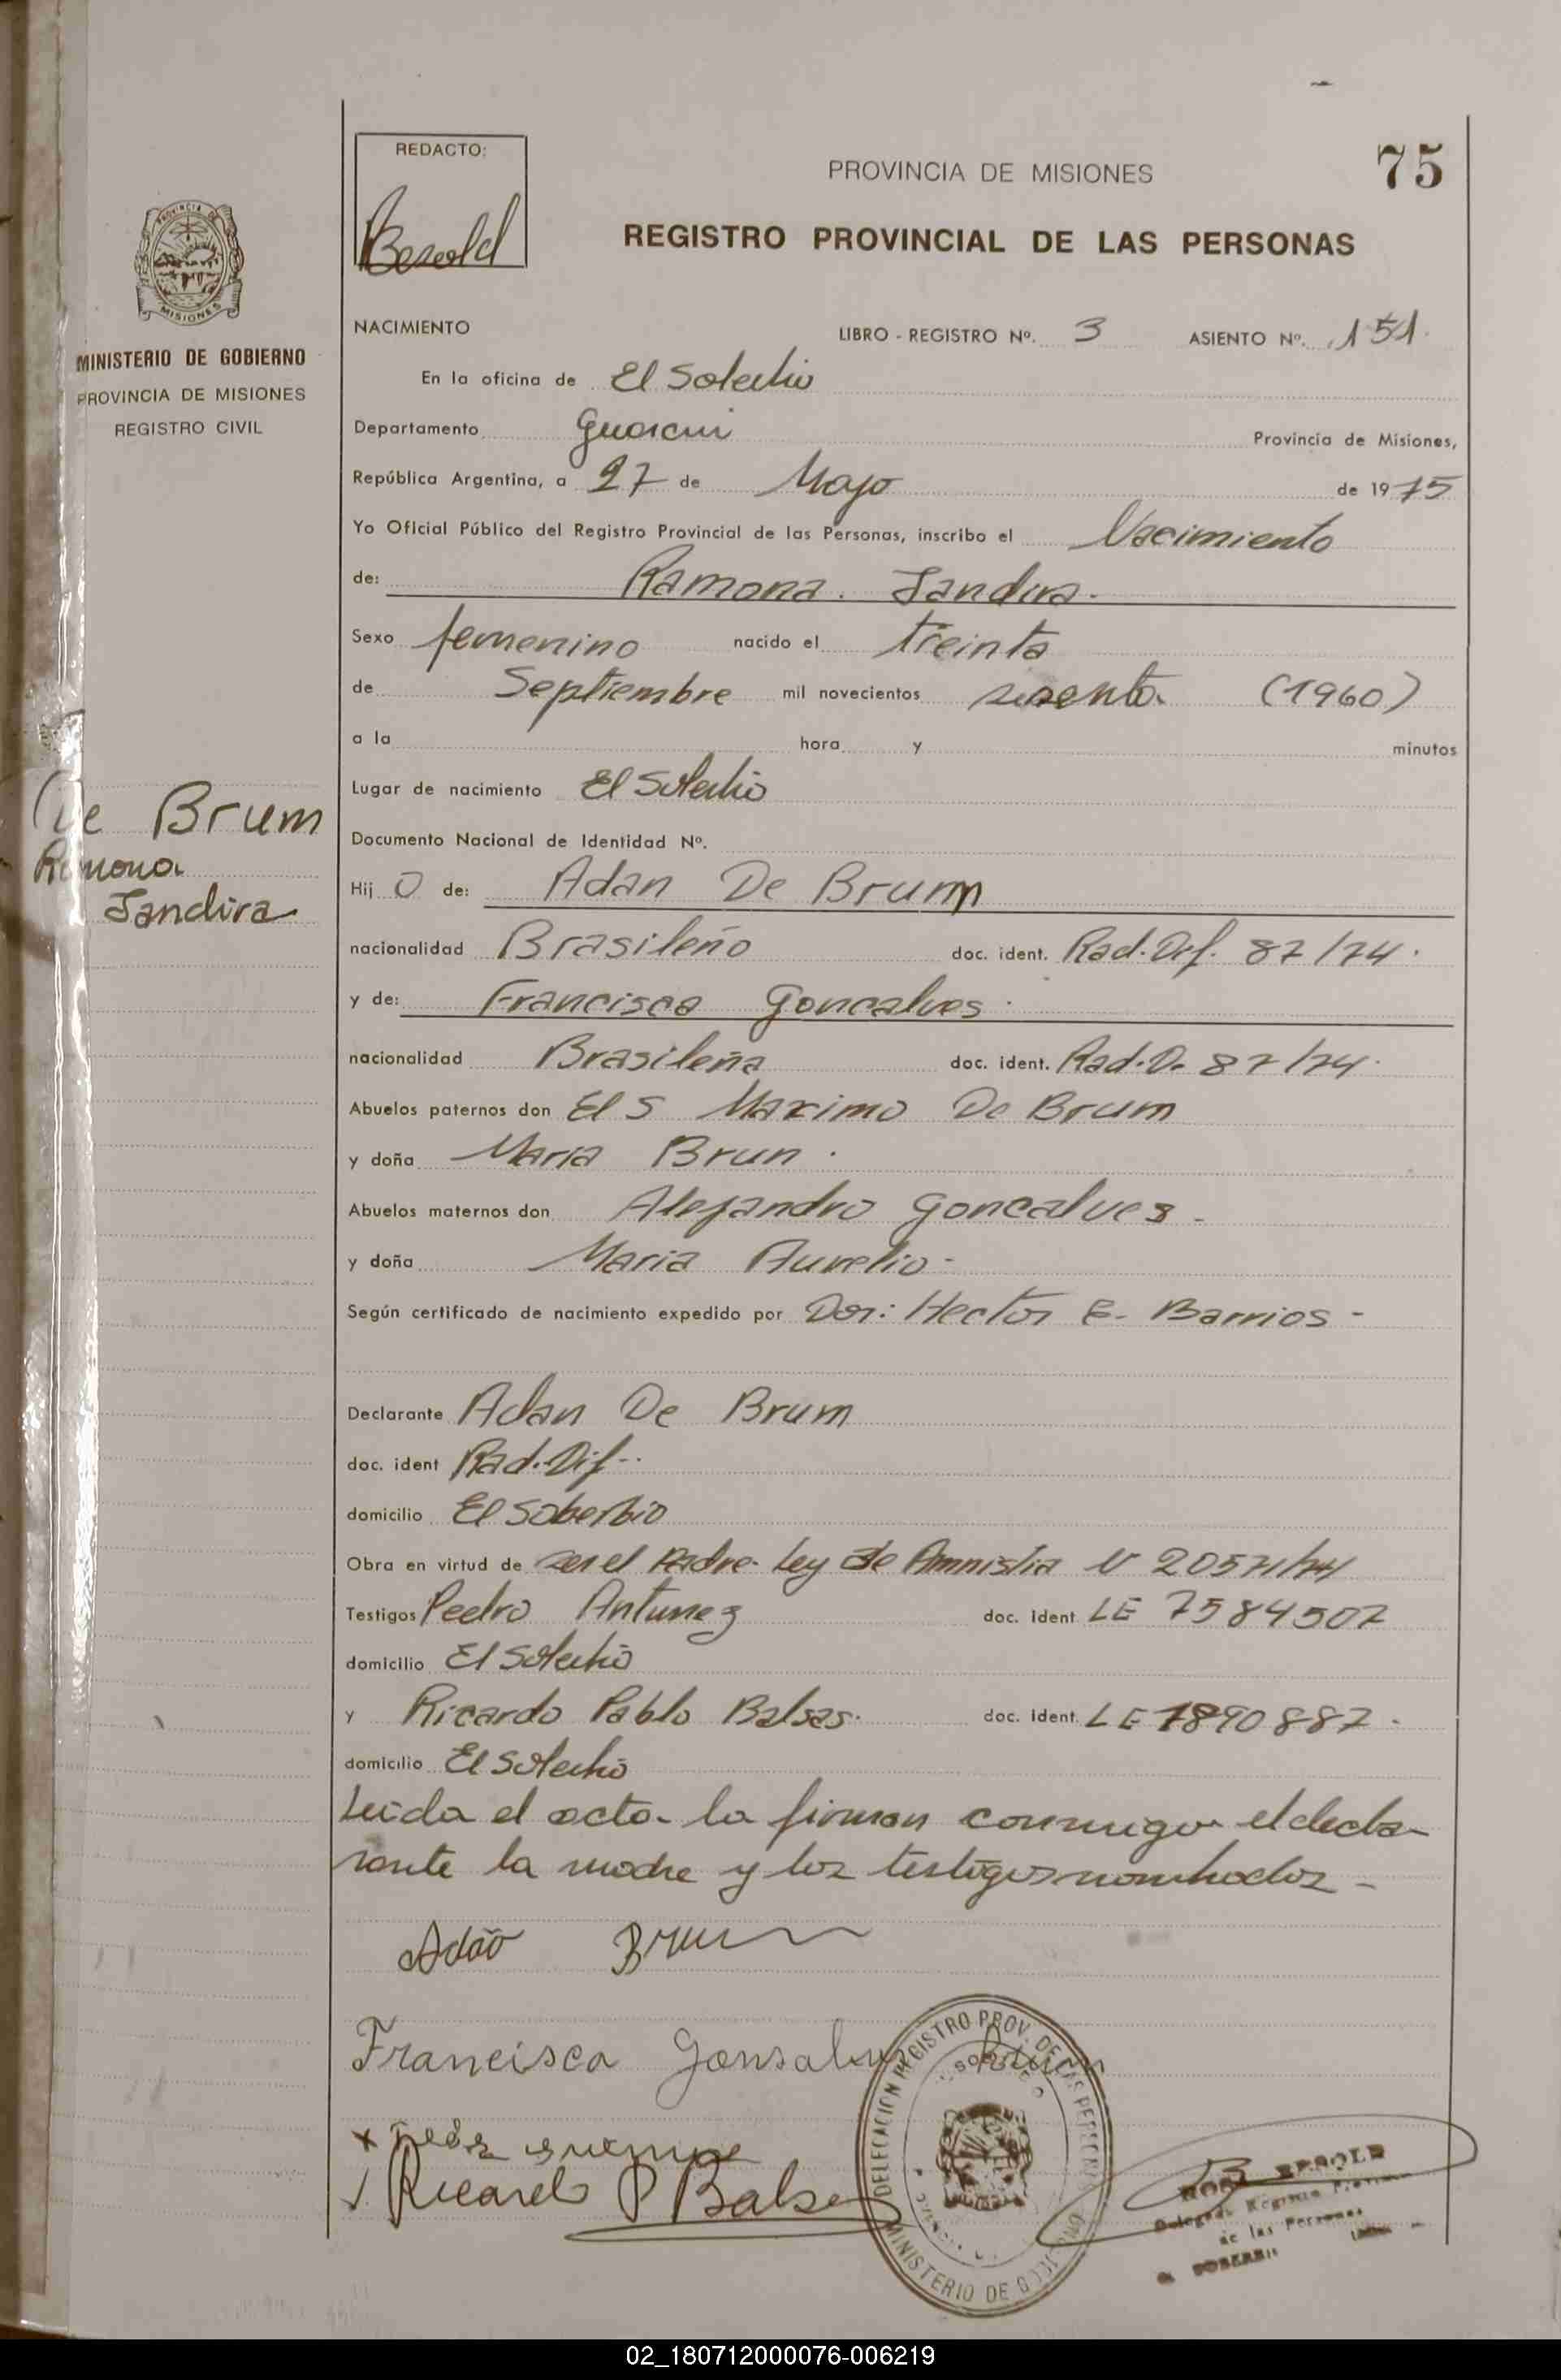 75
REDACTO:
Bezold
PROVINCIA DE MISIONES
REGISTRO PROVINCIAL DE LAS PERSONAS
PROVINCIA DE
MISIONES
MINISTERIO DE GOBIERNO
PROVINCIA DE MISIONES
REGISTRO CIVIL
NACIMIENTO LIBRO - REGISTRO Nº. 3 ASIENTO Nº. 151.
En la oficina de El Soberbio
Departamento Guarani Provincia de Misiones,
República Argentina, a 27 de Mayo de 1975
Yo Oficial Público del Registro Provincial de las Personas, inscribo el Nacimiento
de: Ramona. Jandira.
Sexo femenino nacido el treinta
de Septiembre mil novecientos sesenta (1960)
a la hora y minutos
Lugar de nacimiento El Soberbio
De Brum
Ramona
Jandira
Documento Nacional de Identidad Nº.
Hij O de: Adan De Brum
nacionalidad Brasileño doc. ident. Rad. Dif. 87/74.
y de: Francisca Goncalves.
nacionalidad Brasileña doc. ident. Rad. D. 87/74.
Abuelos paternos don El S Maximo De Brum
y doña Maria Brun.
Abuelos maternos don Alejandro Goncalves -
y doña Maria Aurelio -
Según certificado de nacimiento expedido por Dor: Hector E. Barrios -
Declarante Adan De Brum
doc. ident Rad. Dif -.
domicilio El Soberbio
Obra en virtud de ser el Padre - Ley de Amnistia N 20571/74
Testigos Pedro Antunez doc. ident LE 7584507
domicilio El Soberbio
y Ricardo Pablo Balsas. doc. ident. LE 7890887 -
domicilio El Soberbio
Leida el acta la firman conmigo el decla-
rante la madre y los testigos nombrados -
Adão Brum
Francisca Gonsalves Brum
Ricardo P Balsa
DELEGACION REGISTRO PROV. DE LAS PERSONAS
MINISTERIO DE GOBIERNO
BEZOLD
Delegado Registro Provincial
de las Personas
SOBERBIO
02_180712000076-006219